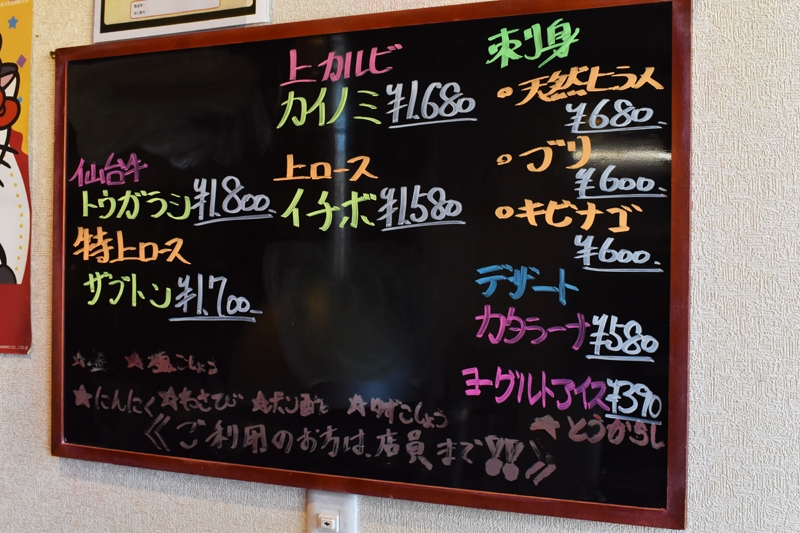 仙台牛
トウガラシ ¥1.800.
特上ロース
ザブトン ¥1.700-
上カルビ
カイノミ ¥1.680
上ロース
イチボ ¥1.580
刺身
天然ヒラス
¥680.
ブリ
¥600.
キビナゴ
¥600.
デザート
カタラーナ ¥580
ヨーグルトアイス ¥390
★塩こしょう
★にんにく ★わさび ★ポン酢 ★ゆずこしょう
★とうがらし
《ご利用のお方は、店員まで!!》